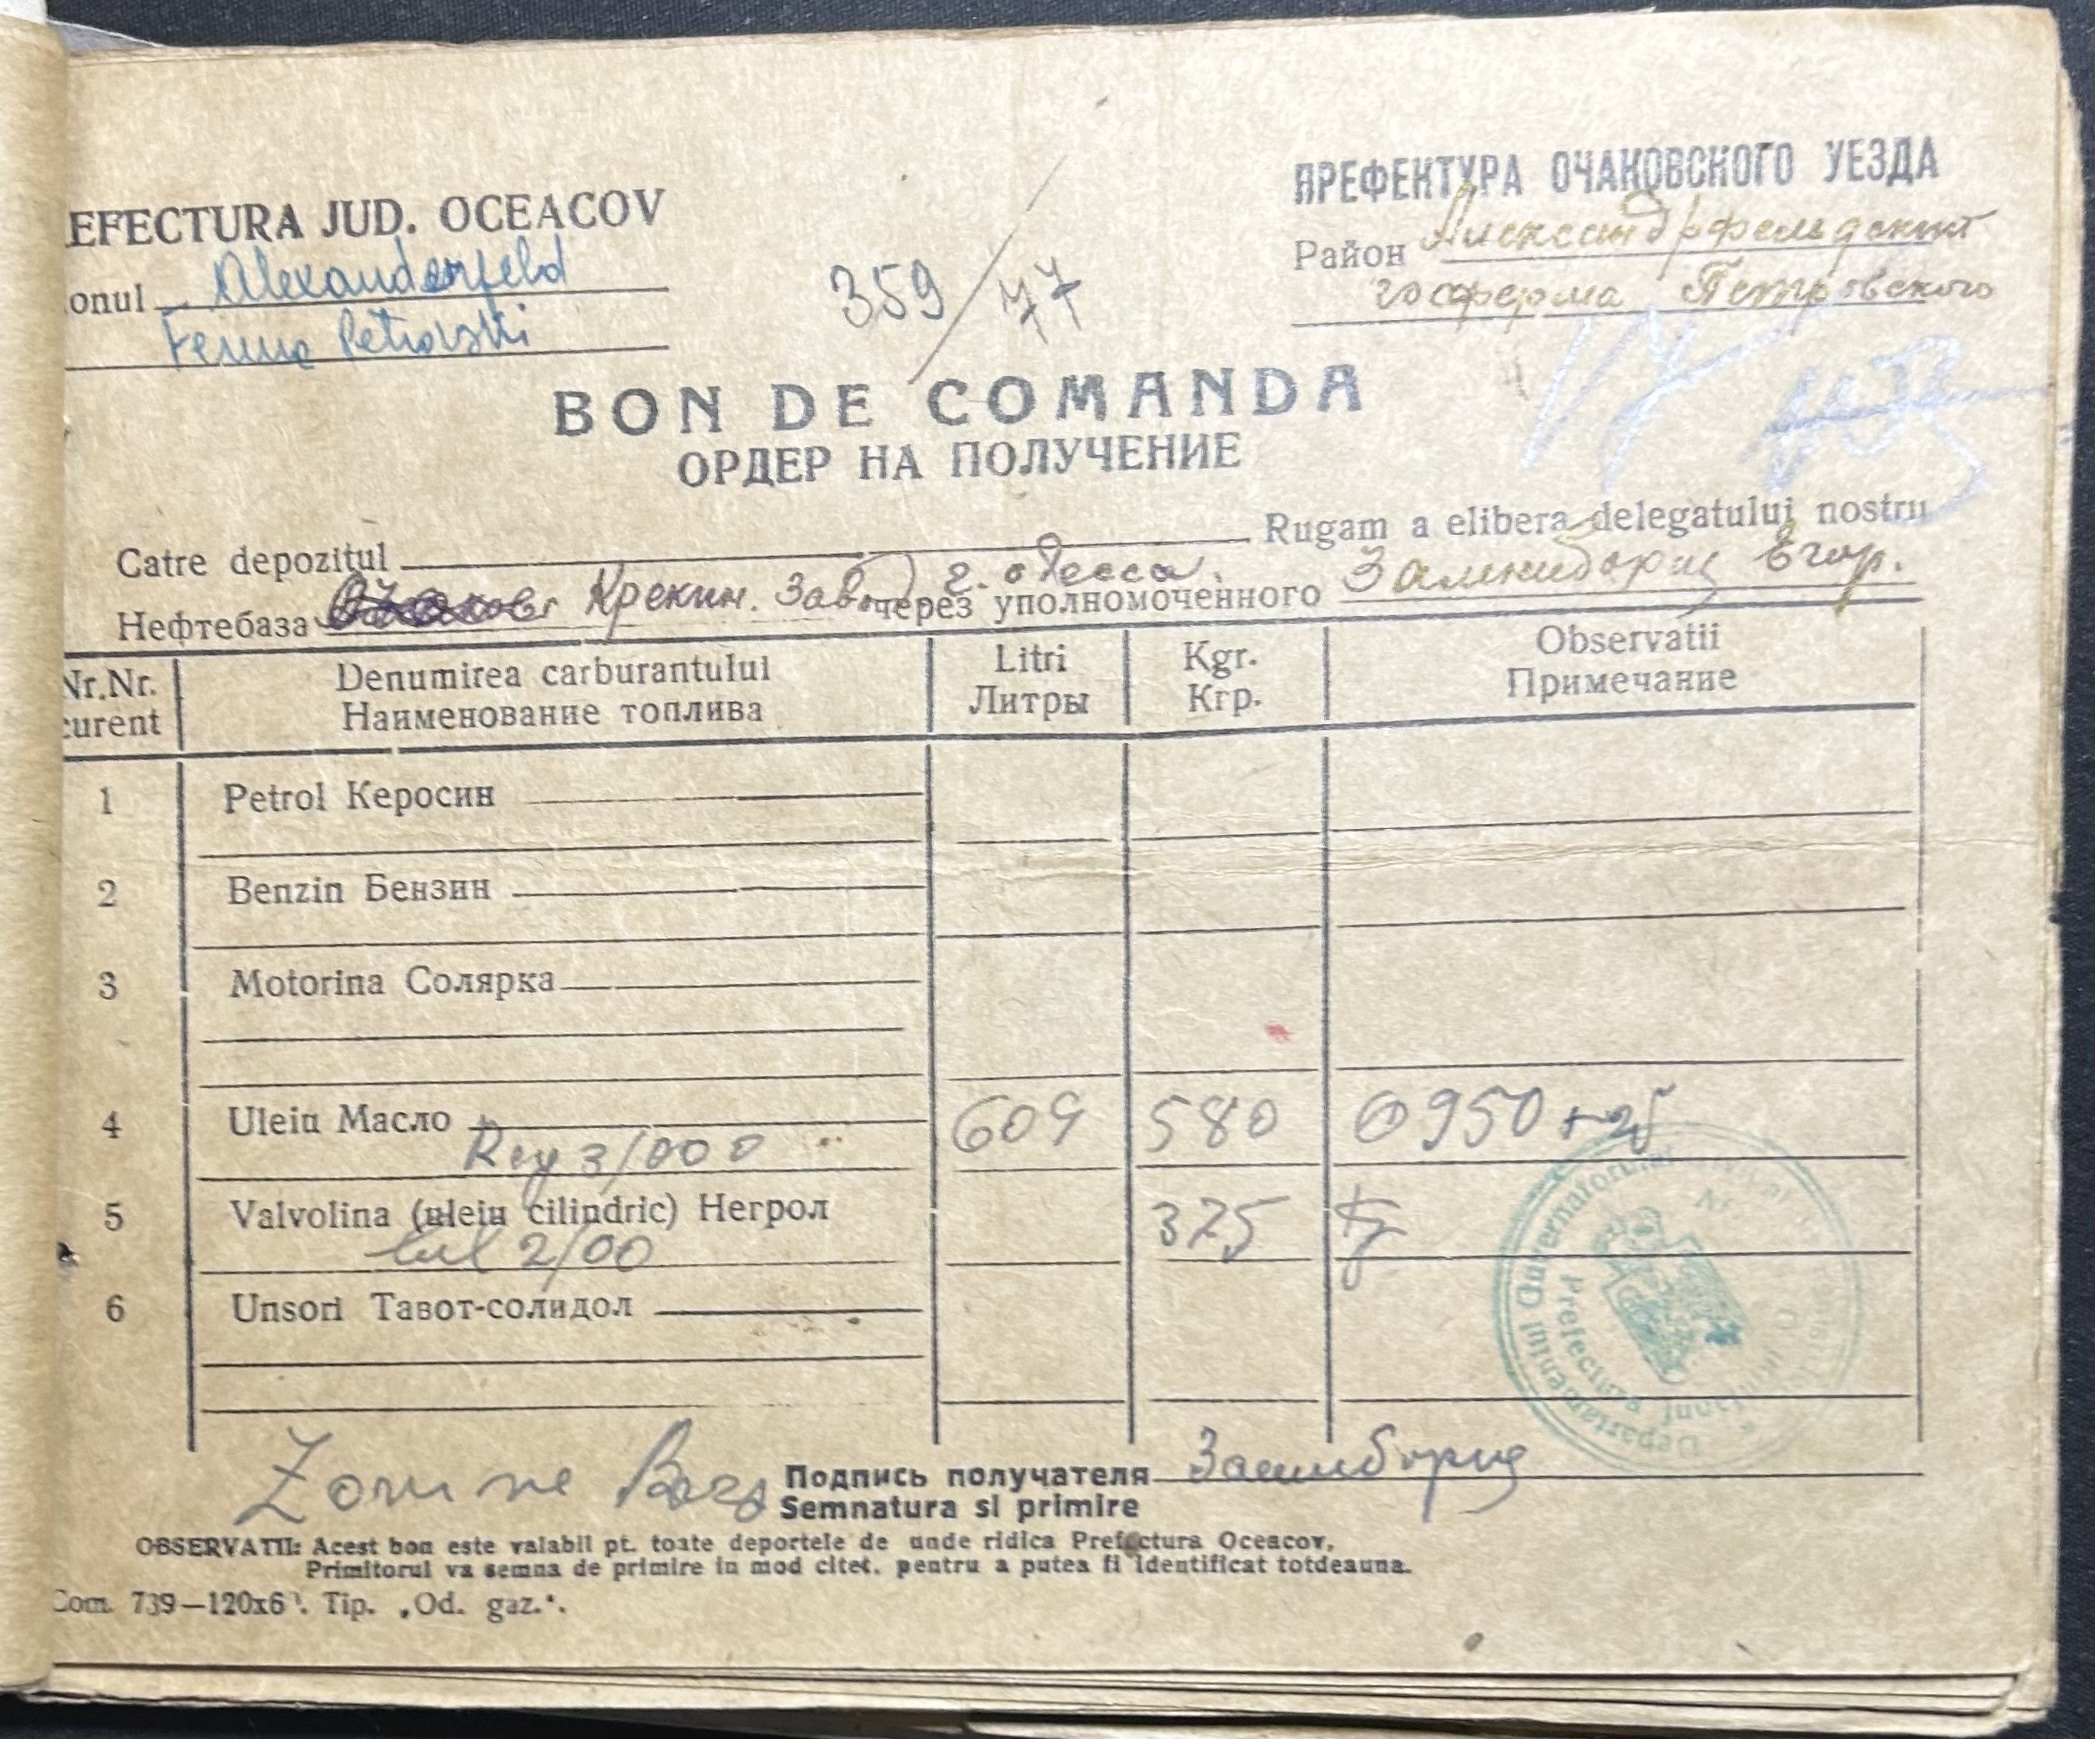 EFECTURA JUD. OCEACOV
onul Alexanderfeld
Ferma Petrovski
359/77
ПРЕФЕКТУРА ОЧАКОВСКОГО УЕЗДА
Район Александрфельдский
госферма Петровского
BON DE COMANDA
ОРДЕР НА ПОЛУЧЕНИЕ
Catre depozitul Rugam a elibera delegatului nostru
Нефтебаза Крекин. завод г. Одесса. через уполномоченного Егор.
Nr.Nr. curent
Denumirea carburantului
Наименование топлива
Litri
Литры
Kgr.
Кгр.
Observatii
Примечание
1 Petrol Керосин
2 Benzin Бензин
3 Motorina Солярка
4 Uleiu Масло 609 580 0950
3/000
5 Valvolina (uleiu cilindric) Негрол 375 kg
2/00
6 Unsori Тавот-солидол
Подпись получателя
Semnatura si primire
OBSERVATII: Acest bon este valabil pt. toate deportele de unde ridica Prefectura Oceacov,
Primitorul va semna de primire in mod citet. pentru a putea fi identificat totdeauna.
Com. 739—120x6 . Tip. „Od. gaz.“.
Guvernatorului
Departamentul
Prefectura Judeţului